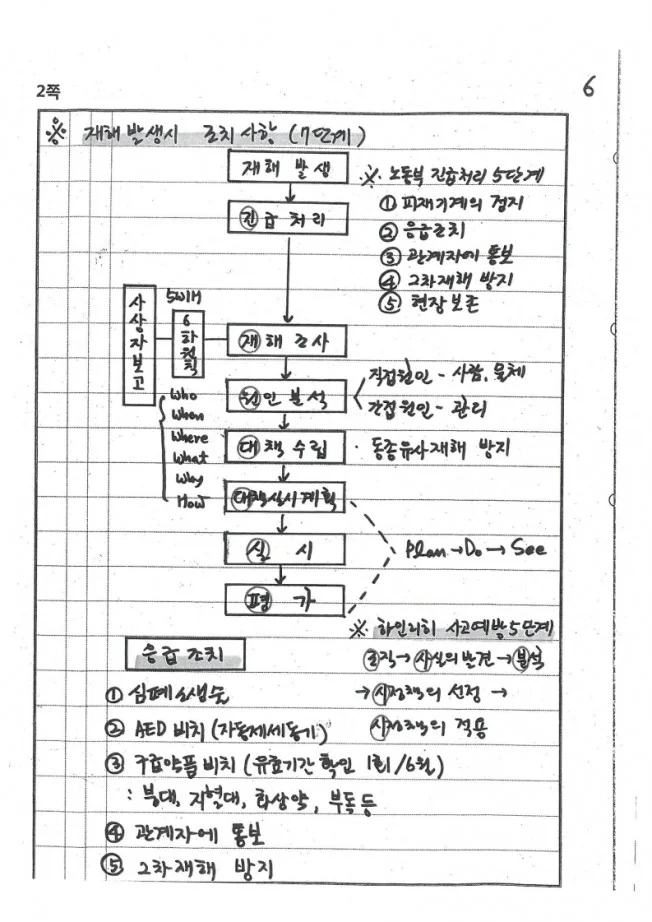 2쪽
6
※ 재해 발생시 조치 사항 (7단계)
재해 발생
긴급처리
※. 노동부 긴급처리 5단계
① 피재기계의 정지
② 응급조치
③ 관계자에 통보
④ 2차재해 방지
⑤ 현장보존
사상자보고
5W1H
6하원칙
재해조사
원인분석
직접원인 - 사람, 물체
간접원인 - 관리
Who
When
Where
What
Why
How
대책수립
· 동종유사재해 방지
대책실시계획
실시
평가
Plan → Do → See
※. 하인리히 사고예방 5단계
조직 → 사실의 발견 → 분석
→ 시정책의 선정 →
시정책의 적용
응급조치
① 심폐소생술
② AED 비치 (자동제세동기)
③ 구급약품 비치 (유효기간 확인 1회/6월)
: 붕대, 지혈대, 화상약, 부목 등
④ 관계자에 통보
⑤ 2차재해 방지